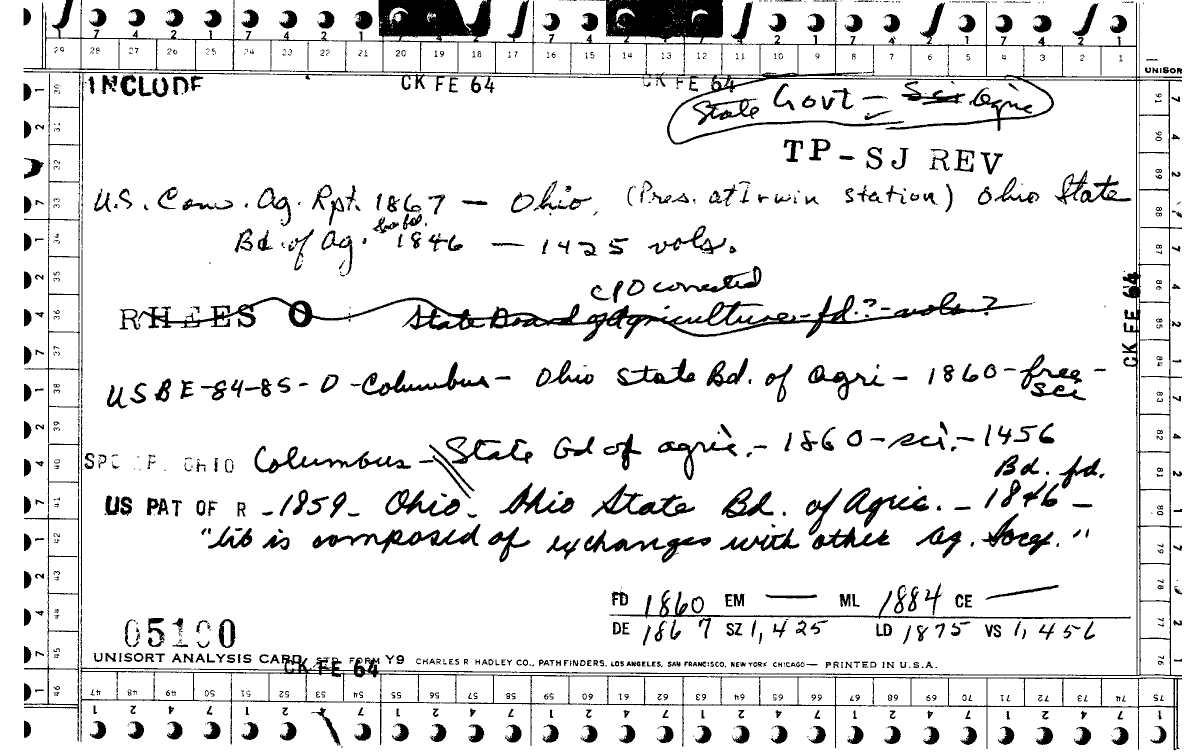 29 28 27 26 25 24 23 22 21 20 19 18 17 16 15 14 13 12 11 10 9 8 7 6 5 4 3 2 1
UNISORT
INCLUDE CK FE 64 CK FE 64
State Govt - Sci Agric
TP-SJ REV
U.S. Com. Ag. Rpt. 1867 - Ohio, (Pres. at Irwin station) Ohio State
Bd. of Ag. 1846 - 1425 vols.
CPO corrected
RHEES O State Board of Agriculture - fd.? - vols?
CK FE 64
USBE-84-85-O-Columbus- Ohio State Bd. of Agri - 1860 - free -
sci
SPC OHIO Columbus - State Bd of agric. - 1860 - sci. - 1456
Bd. fd.
US PAT OF R - 1859 - Ohio - Ohio State Bd. of Agric. - 1846 -
"lib is composed of exchanges with other ag. Socs."
FD 1860 EM — ML 1884 CE —
DE 1867 SZ 1,425 LD 1875 VS 1,456
05100
UNISORT ANALYSIS CARD STD. FORM Y9 CHARLES R HADLEY CO., PATHFINDERS, LOS ANGELES, SAN FRANCISCO, NEW YORK CHICAGO — PRINTED IN U.S.A.
CK FE 64
47 48 49 50 51 52 53 54 55 56 57 58 59 60 61 62 63 64 65 66 67 68 69 70 71 72 73 74 75